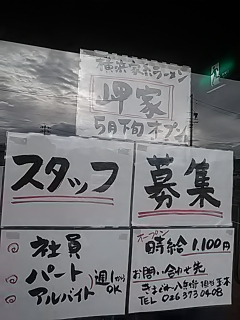 横浜家系ラーメン
岬家
5月下旬オープン
スタッフ
募集
社員
パート
アルバイト
週1からOK
オープン
時給1,100円
お問い合わせ先
TEL 026 373 0408